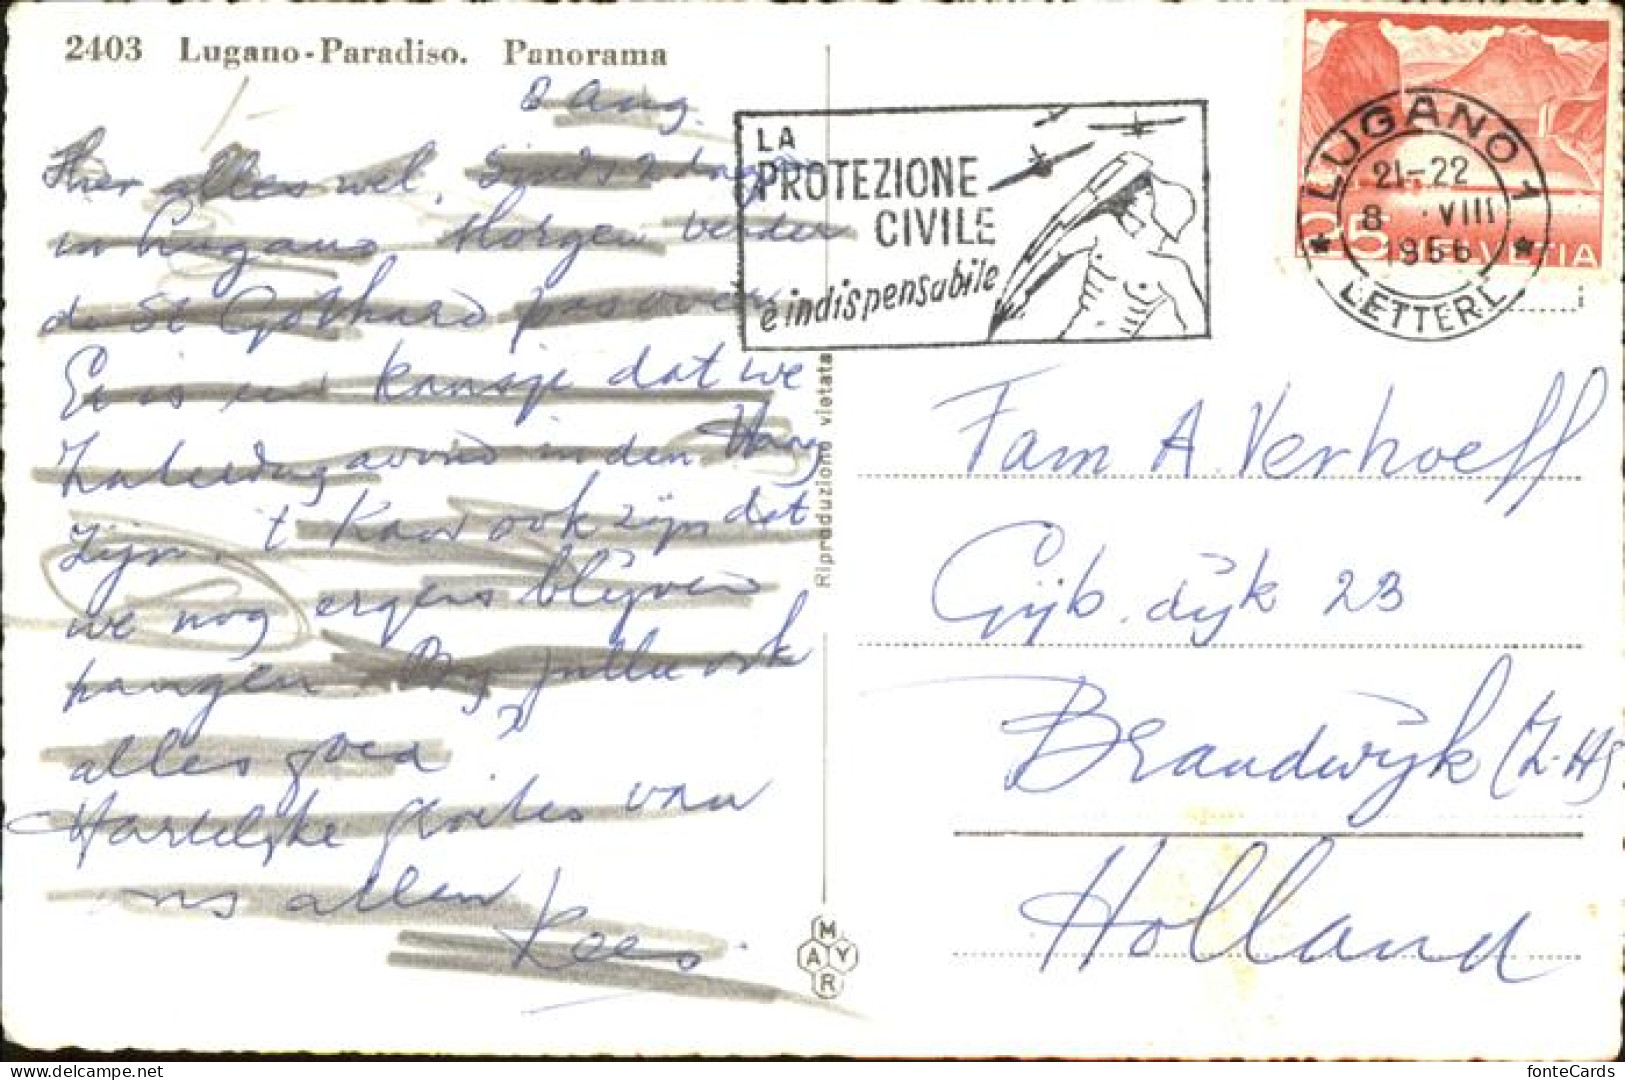 2403 Lugano-Paradiso. Panorama
8 Aug.
Hier alles wel. Sinds 2 dagen
in Lugano Morgen verder
de St Gothard pas over
Er is een kansje dat we
Zaterdag avond in den Haag
zijn. 't Kan ook zijn dat
we nog ergens blijven
hangen. By jullie ook
alles goed?
Hartelijke groetes van
ons allen
Kees.
LA
PROTEZIONE
CIVILE
è indispensabile
LUGANO 1
21-22
8 VIII
1956
LETTERE
25 HELVETIA
Riproduzione vietata
MAYR
Fam A. Verhoeff
Gijb. dijk 23
Brandwijk (Z-H)
Holland
fonteCards